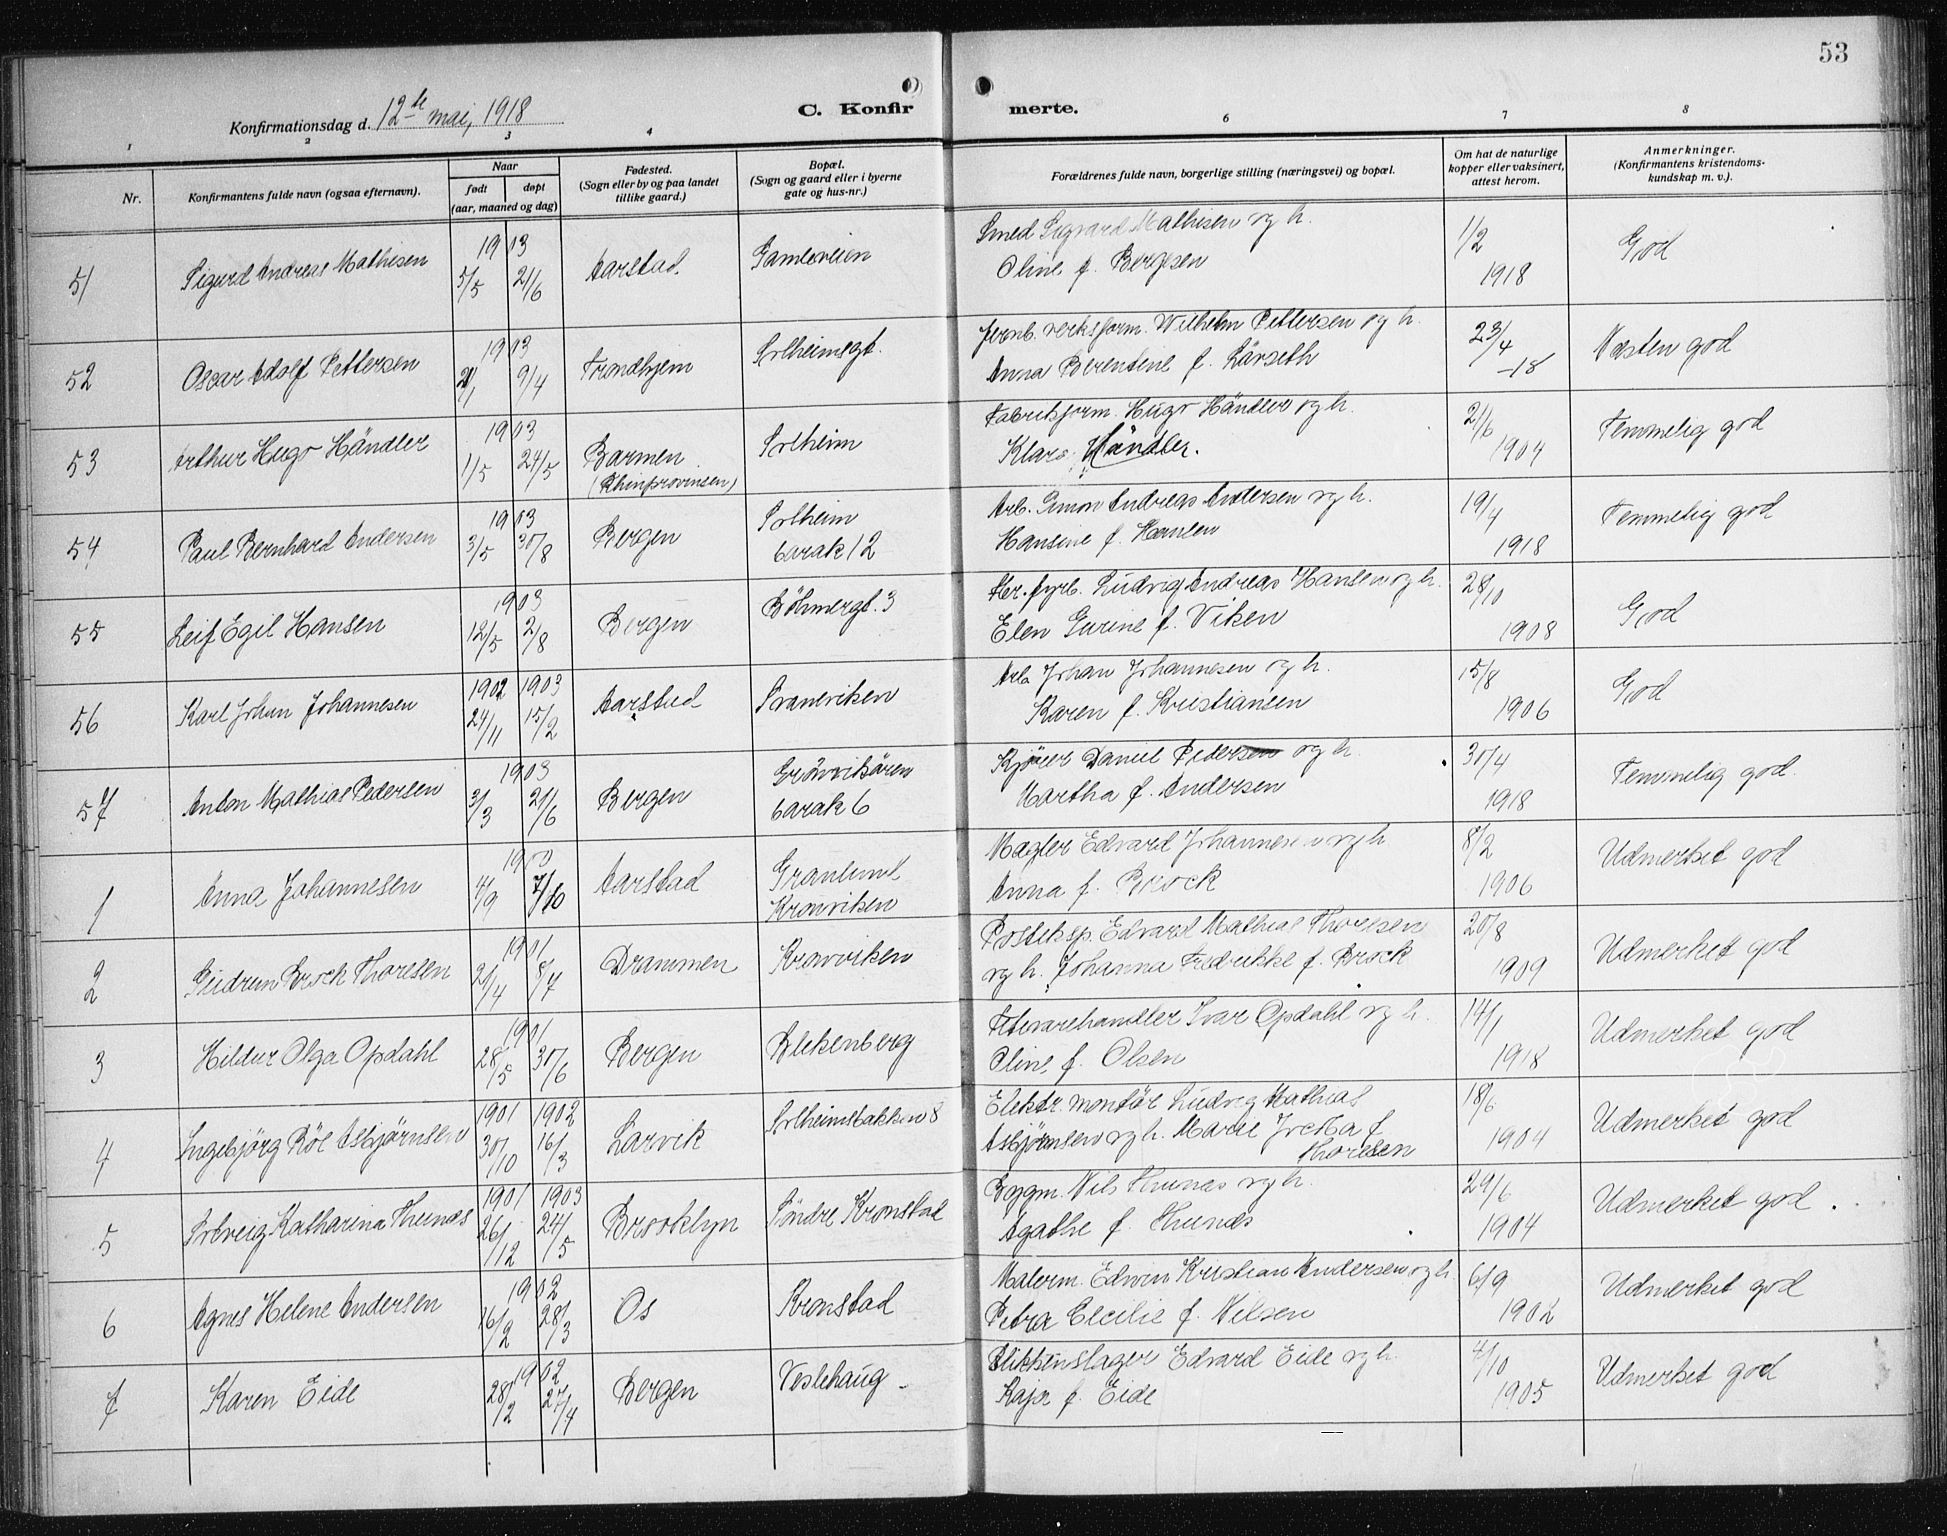 53
Konfirmationsdag d. 12te mai, 1918
C. Konfirmerte.
1 2 3 4 6 7 8
Nr.
Konfirmantens fulde navn (ogsaa efternavn).
Naar
født døpt
(aar, maaned og dag)
Fødested.
(Sogn eller by og paa landet
tillike gaard.)
Bopæl.
(Sogn og gaard eller i byerne
gate og hus-nr.)
Forældrenes fulde navn, borgerlige stilling (næringsvei) og bopæl.
Om hat de naturlige
kopper eller vaksinert,
attest herom.
Anmerkninger.
(Konfirmantens kristendoms-
kundskap m. v.).
51 Sigurd Andreas Mathisen 1903 5/5 21/6 Aarstad. Gamleveien Smed Sigvard Mathisen og h. 1/2 God
Oline f. Bergesen 1918
52 Oscar Adolf Pettersen 1903 9/4 Trondhjem Solheimsgt. Jernb. verksform. Wilhelm Pettersen og h. 23/4 Næsten god
Anna Berentine f. Lärseth -18
53 Arthur Hugo Händler 1903 1/5 24/5 Barmen Solheim Fabrikform. Hugo Händler og h. 21/6 Temmelig god
(Rhinprovinsen) Klara Händler. 1904
54 Paul Bernhard Andersen 1903 3/5 30/8 Bergen Solheim Arb. Simon Andreas Andersen og h. 19/4 Temmelig god
barak 12 Hansine f. 1918
55 Leif Egil Hansen 1903 12/5 2/8 Bergen Böhmergt. 3 fyrb. Ludvig Andreas Hansen og h. 28/10 God
Elen Gurine f. Viken 1908
56 Karl Johan Johannesen 1902 1903 24/11 15/2 Aarstad Svaneviken Arb. Johan Johannesen og h. 15/8 God
Karen f. Kristiansen 1906
57 Anton Mathias Pedersen 1903 3/3 21/6 Bergen Grönvikören Kjører Daniel Pedersen og h. 30/4 Temmelig god.
barak 6 Martha f. Andersen 1918
1 Anna Johannesen 4/9 7/10 Aarstad Granlund Mægler Edvard Johannesen og h 8/2 Udmerket god
Kronviken Anna f. Brock 1906
2 Gudrun Brock Thoresen 1901 21/4 8/7 Drammen Kronviken Posteksp. Edvard Mathias Thoresen 20/8 Udmerket god
og h. Johanna Fredrikke f. Brock 1909
3 Hildur Olga Opdahl 1901 28/5 30/6 Bergen Blekenberg Ivar Opdahl og h. 14/1 Udmerket god
Oline f. Olsen 1918
4 Ingebjörg Röe Asbjørnsen 1901 1902 30/10 16/3 Larvik Solheimsbakken 8 Elektr. montör Ludvig Mathias 18/6 Udmerket god
Asbjørnsen og h. Marie f 1904
Thoresen
5 Solveig Katharina Thunæs 1901 1903 26/12 24/5 Brooklyn Söndre Kronstad Bygm. Nils Thunæs og h. 29/6 Udmerket god
Agathe f. Thunæs 1904
6 Agnes Helene Andersen 1902 16/2 28/3 Os Kronstad Malerm. Edwin Kristian Andersen og h. 6/9 Udmerket god
Petra Cecilie f. Nilsen 1902
7 Karen Eide 1902 28/2 27/4 Bergen Veslehaug Blikkenslager Edvard Eide og h. 4/10 Udmerket god
Kaja f. Eide 1905